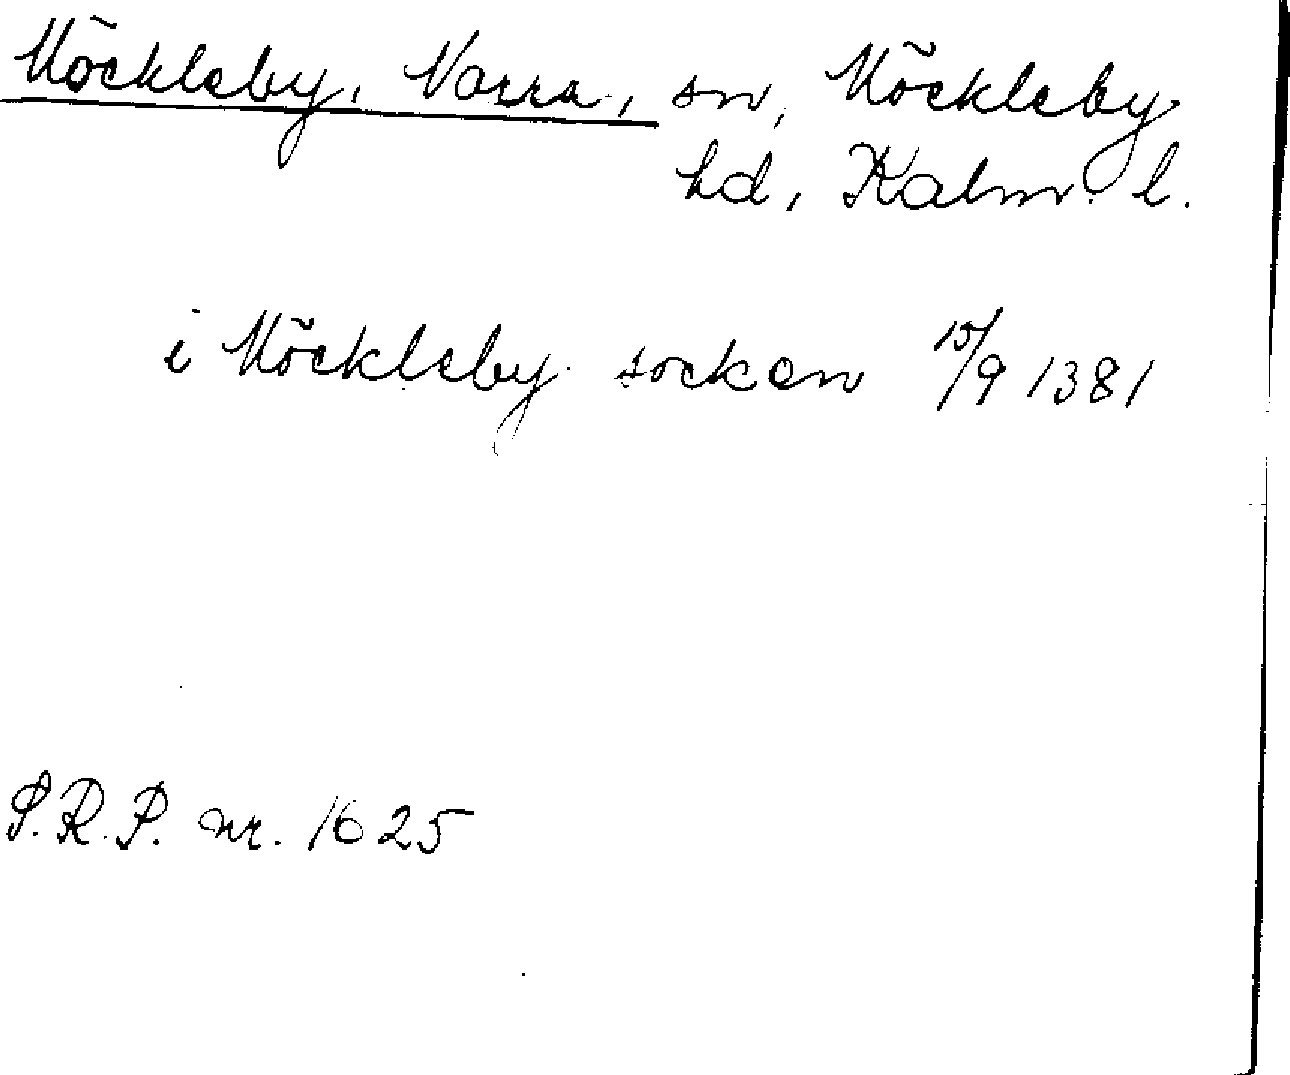 Möckleby, Norra, sn, Möckleby
hd, Kalm. l.
i Möckleby socken 15/9 1381
S.R.P. nr. 1625